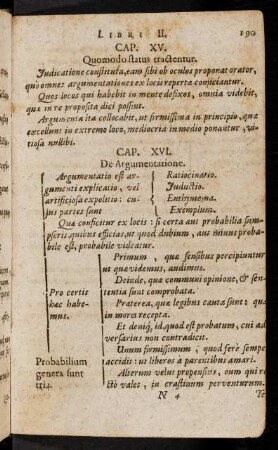 LIBRI II. 190
CAP. XV.
Quomodo status tractentur.
Iudicatione constituta, eam sibi ob oculos proponat orator,
quo omnes argumentationes ex locis repertæ coniiciantur.
Quos locos qui habebit in mente defixos, omnia videbit,
quæ in re proposita dici possint.
Argumenta ita collocabit, ut firmissima in principio, quæ
excellunt in extremo loco, mediocria in medio ponantur, vi-
tiosa nullibi.
CAP. XVI.
De Argumentatione.
Argumentatio est ar-
gumenti explicatio, vel
artificiosa expolitio: cu-
jus partes sunt
Ratiocinatio.
Inductio.
Enthymema.
Exemplum.
Quæ conficitur ex locis: si certa aut probabilia sem-
pseris, quibus efficias, ut quod dubium, aut minus proba-
bile est, probabile videatur.
Pro certis
hæc habe-
mus.
Primum, quæ sensibus percipiuntur
ut quæ videmus, audimus.
Deinde, quæ communi opinione, & sen-
tentia sunt comprobata.
Præterea, quæ legibus cauta sunt: quæ
in mores recepta.
Et deniq;, id, quod est probatum, cui ad-
versarius non contradicit.
Probabilium
genera sunt
tria.
Unum firmissimum, quod ferè semper
accidit: ut liberos à parentibus amari.
Alterum velut propensius, eum qui re-
ctè valet, in crastinum perventurum.
N 4